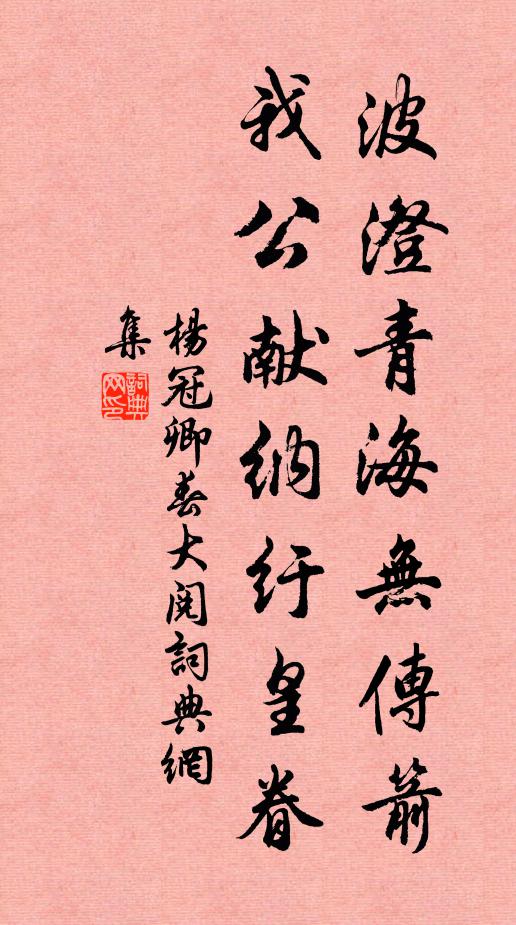 波澄青海無傳箭
我公献納紆皇眷
楊冠卿春大閱詞典網
集
詞典網印